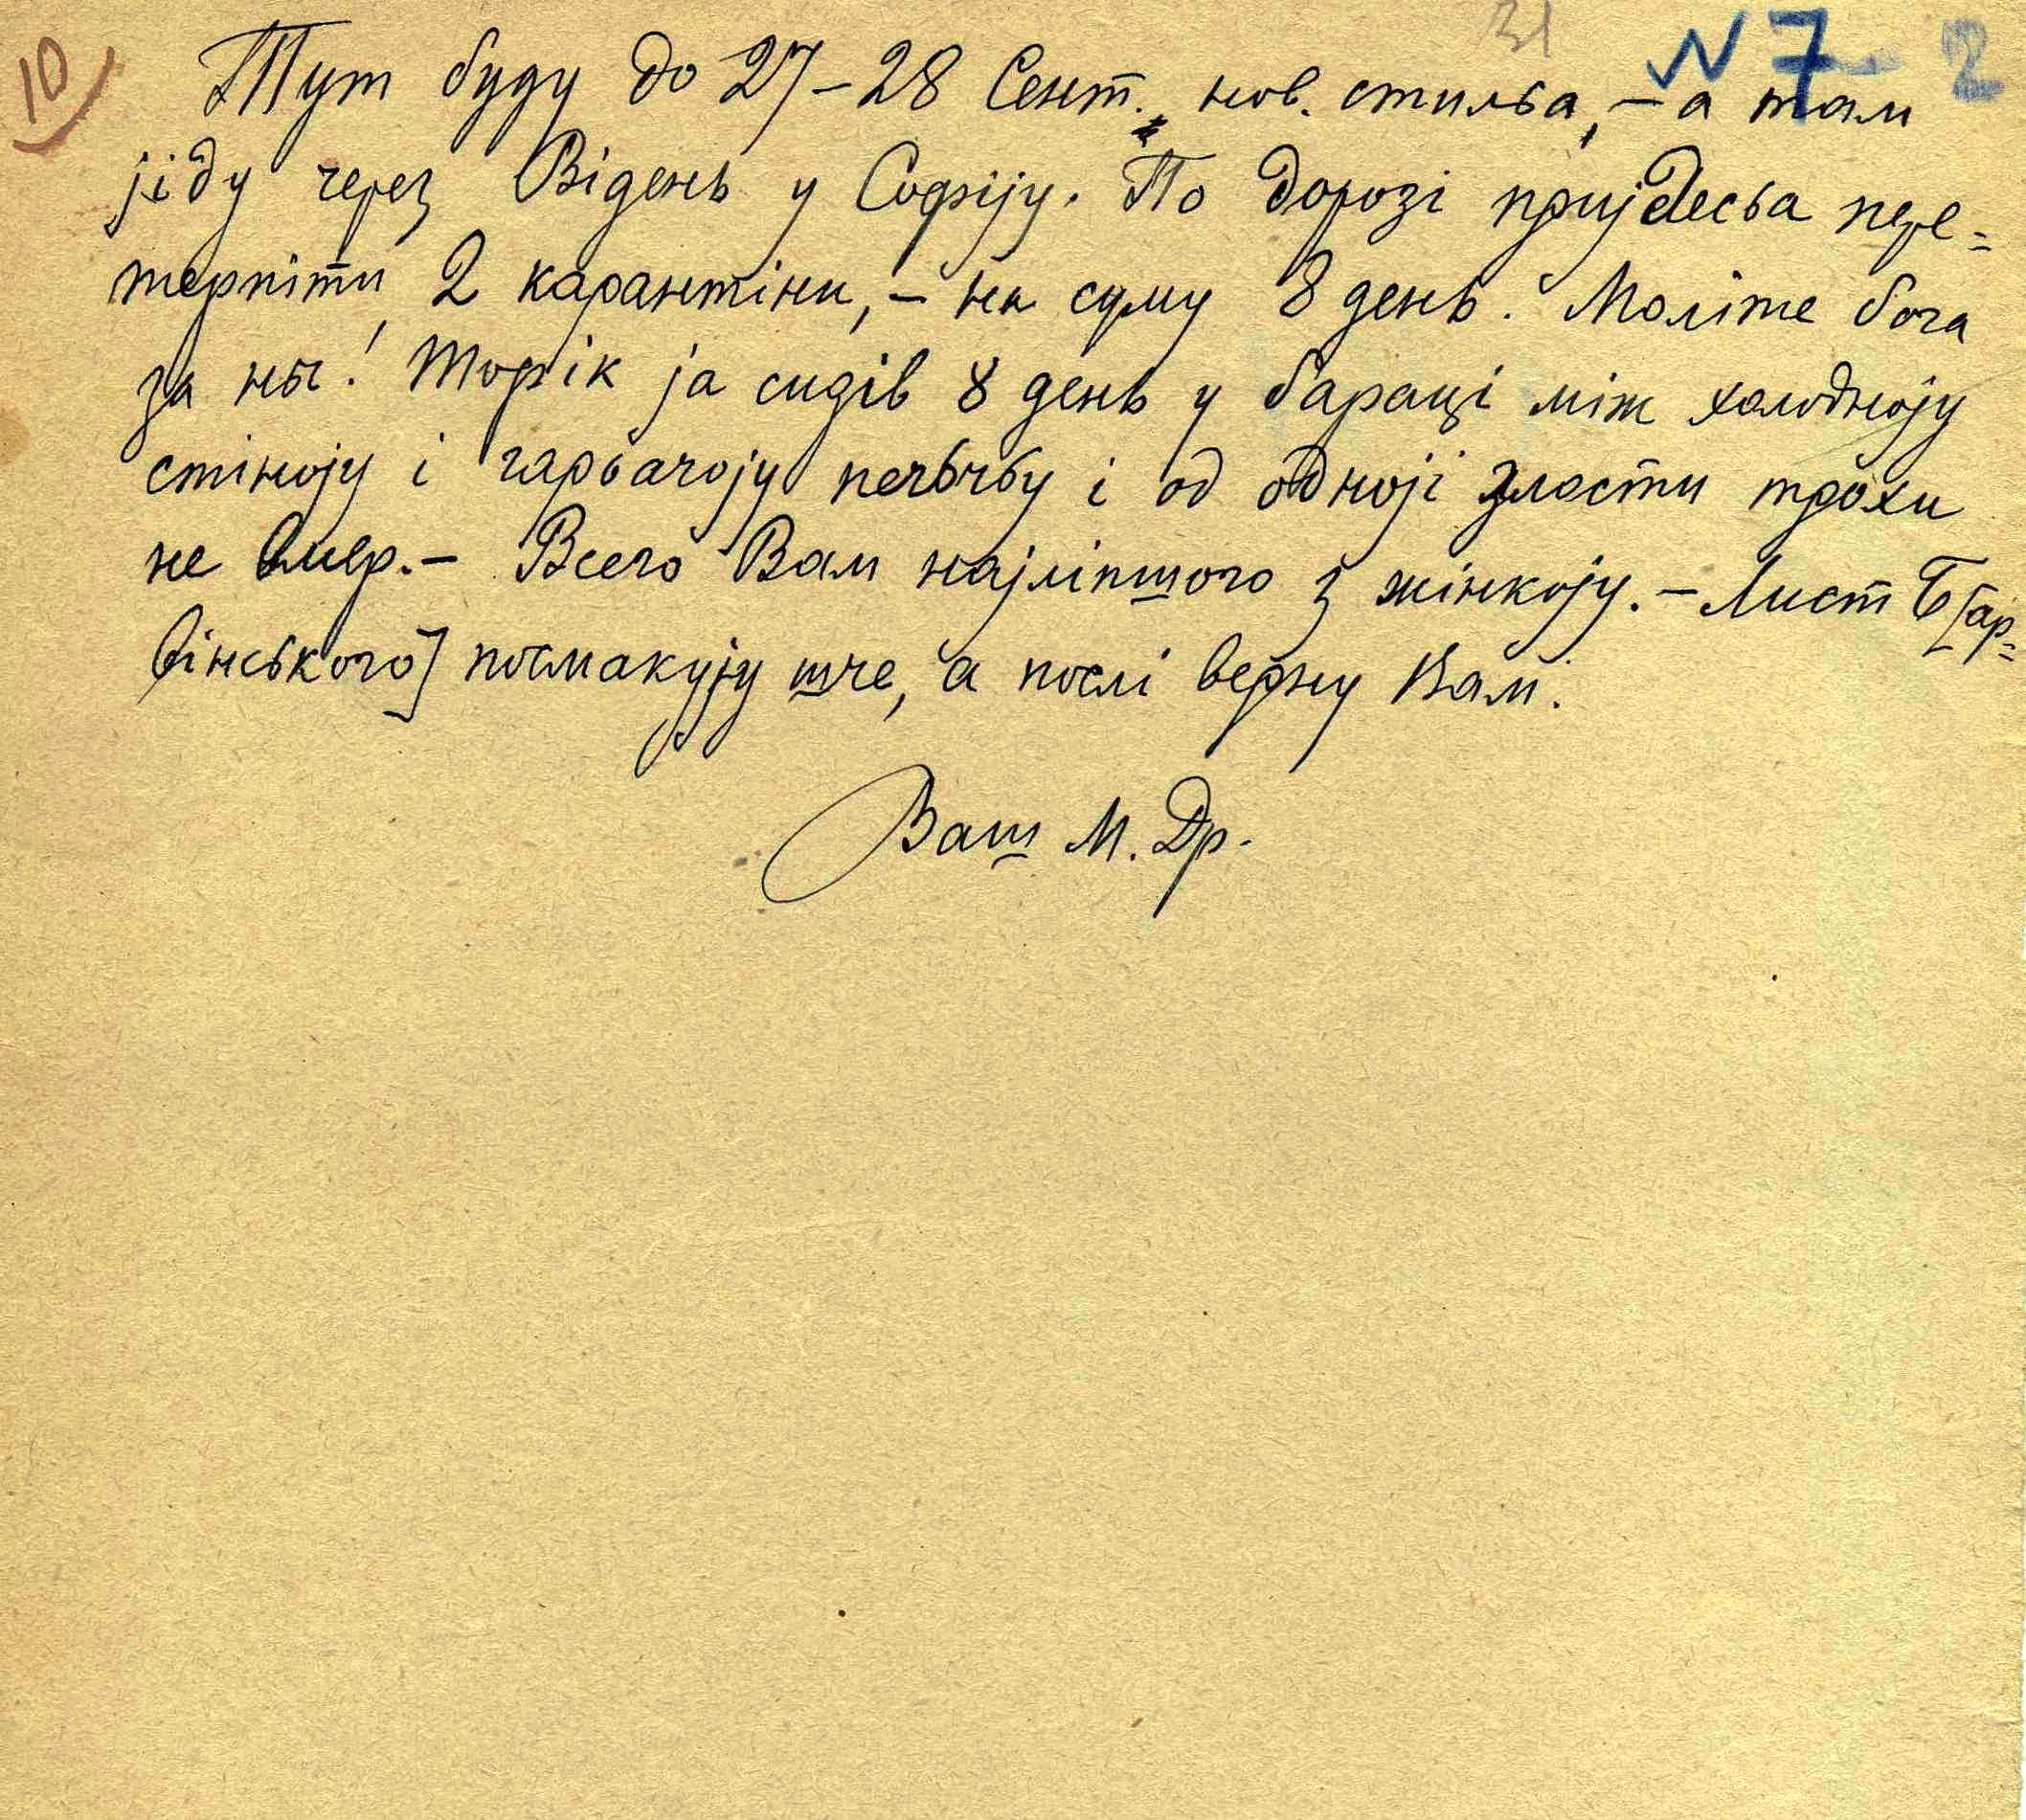 10) 31 № 7 2
Тут буду до 27–28 Сент. нов. стильа, – а там
јіду через Відень у Софіју. По дорозі пријдесьа пере=
терпіти 2 карантіни, – на суму 8 день. Моліте бога
за ны! Торік ја сидів 8 день у бараці між холодноју
стіноју і гарьачоју печьчьу і од одноји злости трохи
не вмер. – Всего Вам најліпшого з жінкоју. – Лист Б[ар=
вінського] посмакују шче, а послі верну Вам.
Ваш М. Др.